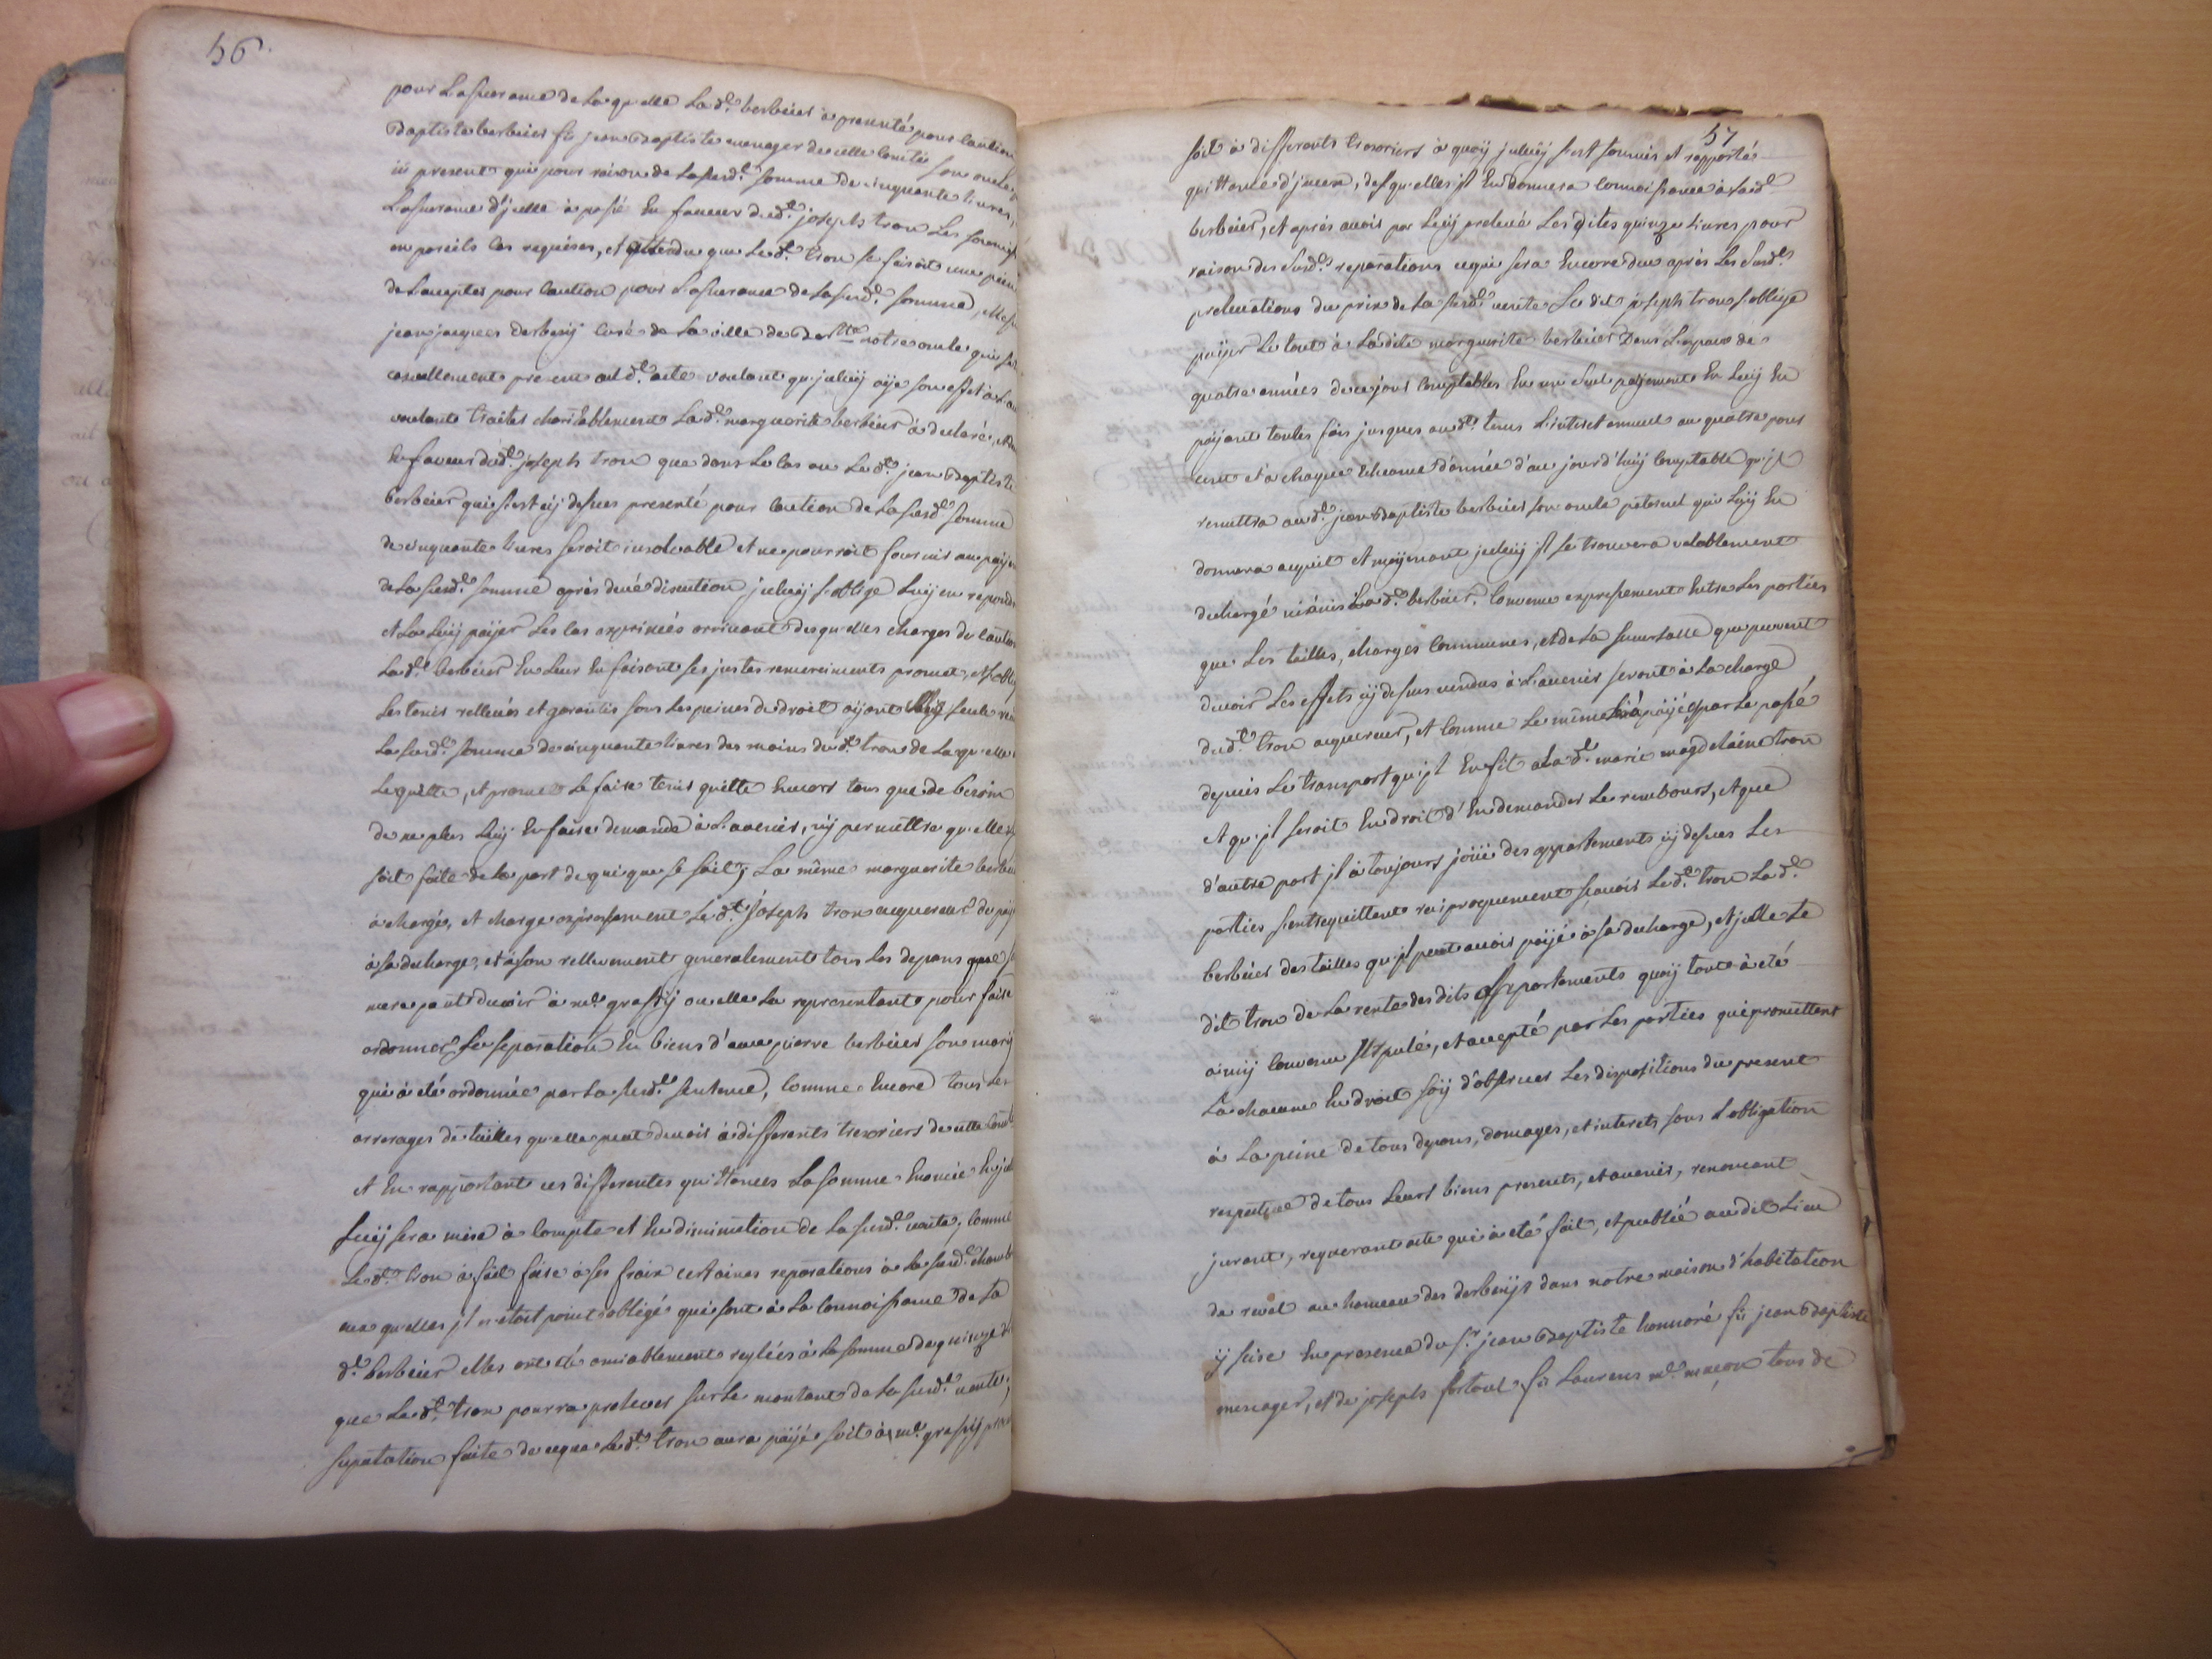 56.
pour l'assurance de laquelle lad.e berbeier à presenté pour caution
Baptiste berbeier fû jean Baptiste menager de cette comté son oncle
icy present qui pour raison de la susd.e somme de cinquante livres,
l'assurance d'jcelle à passé en faveur dud.t joseph tron les soumis
en pareils cas requises, et attendu que led.t tron se faisoit une peine
de l'accepter pour caution pour l'assurance de la susd.e somme, Mes
jean jacques derbesy curé de la ville de notre oncle qui se
casuellement present aud.t acte voulant qu'jcelluy aye son effet à
voulant traiter charitablement lad.e marguerite berbeier à declaré,
en faveur dud.t joseph tron que dans le cas ou led.t jean Baptiste
berbeier qui s'est cy dessus presenté pour caution de la susd.e somme
de cinquante livres seroit insolvable et ne pourroit fournir au paye
de la susd.e somme après deüe discution jcelluy s'oblige luy en repondre
et la luy payer les cas exprimés arrivant desquelles charges de caution
lad.e berbeier en leur en faisant ses justes remerciments promet, et s'obli
les tenir relleués et garantis sous les peines de droit ayant seule
la susd.e somme de cinquante livres des mains dud.t tron de laquelle
le quitte, et promet le faire tenir quitte envers tous que de besoin
de ne plus luy en faire demande à l'avenir, ny permettre qu'elle
soit faite de la part de qui que se soit; La même marguerite berbei
à chargé, et charge expressement led.t joseph tron acquereur de pay
à sa decharge, et à son rellevement generalement tous les depans que
mere peut devoir à m.e grassy ou elle la representant pour faire
ordonner sa separation en biens d'avec pierre berbeier son mary
qui à été ordonnée par la susd.e sentence, comme encore tous les
arrerages de tailles qu'elle peut devoir à differents tresoriers de cette
et en rapportant ces differentes quittances la somme enoncée en
luy sera mise à compte et en diminution de la susd.e vente; comme
led.t tron à fait faire à ses fraix certaines reparations à la susd.e chamb
aux quelles jl n'etoit point obligé qui sont à la connoissance de la
d.e berbeier elles ont été amiablement reglées à la somme de quinze
que led.t tron pourra prelever sur le montant de la susd.e vente,
suputation faite de ceque led.t tron aura payé soit à m.e grassy
57
soit à differents tresoriers à quoy jcelluy s'est soumis et rapporté
quittance d'jceux, desquelles jl en donnera connoissance à lad.e
berbeier, et après avoir par luy prelevé les dites quinze livres pour
raison des susd.es reparations ce qui sera encore dû après les susd.es
prelevations du prix de la susd.e vente le dit joseph tron s'oblige
payer le tout à ladite marguerite berbeier Dans l'espace de
quatre années de ce jour comptables en un seul payement en luy en
payant toutes fois jusques aud.t tems l'interet annuel au quatre pour
cent et à chaque echeance d'année d'au jourd'huy comptable qu'jl
remettra aud.t jean Baptiste berbeier son oncle paternel qui luy en
donnera acquit et moyenant jcelluy jl se trouvera valablement
dechargé lad.e berbeier. Convenu expressement entre les parties
que les tailles, charges communes, et de la sucursalle que peuvent
devoir les effets cy dessus vendus à l'avenir seront à la charge
dud.t tron acquereur, et comme le même les à payé par le passé
depuis le transport qu'jl en fit à lad.e marie magdelaine tron
et qu'jl seroit en droit d'en demander le rembours, et que
d'autre part jl à toujours jouï des appartements cy dessus les
parties s'entrequittent reciproquement sçauoir led.t tron lad.e
berbeier des tailles qu'jl peut avoir payé à sa decharge, et jcelle le
dit tron de la rente des dits appartements quoy tout à été
ainsy convenu stipulé, et accepté par les parties qui promettent
la chacune en droit soy d'observer les dispositions du present
à la peine de tous depans, domages, et interets sous l'obligation
respective de tous leurs biens presents, et avenir, renonceant
jurant, requerant acte qui à été fait, et publié au dit lieu
de revel au hameau des derbesys dans notre maison d'habitation
y sise en presence du s.r jean Baptiste honnoré fû jean Baptiste
menager, et de joseph fortoul fû Laurens m.e maçon tous de